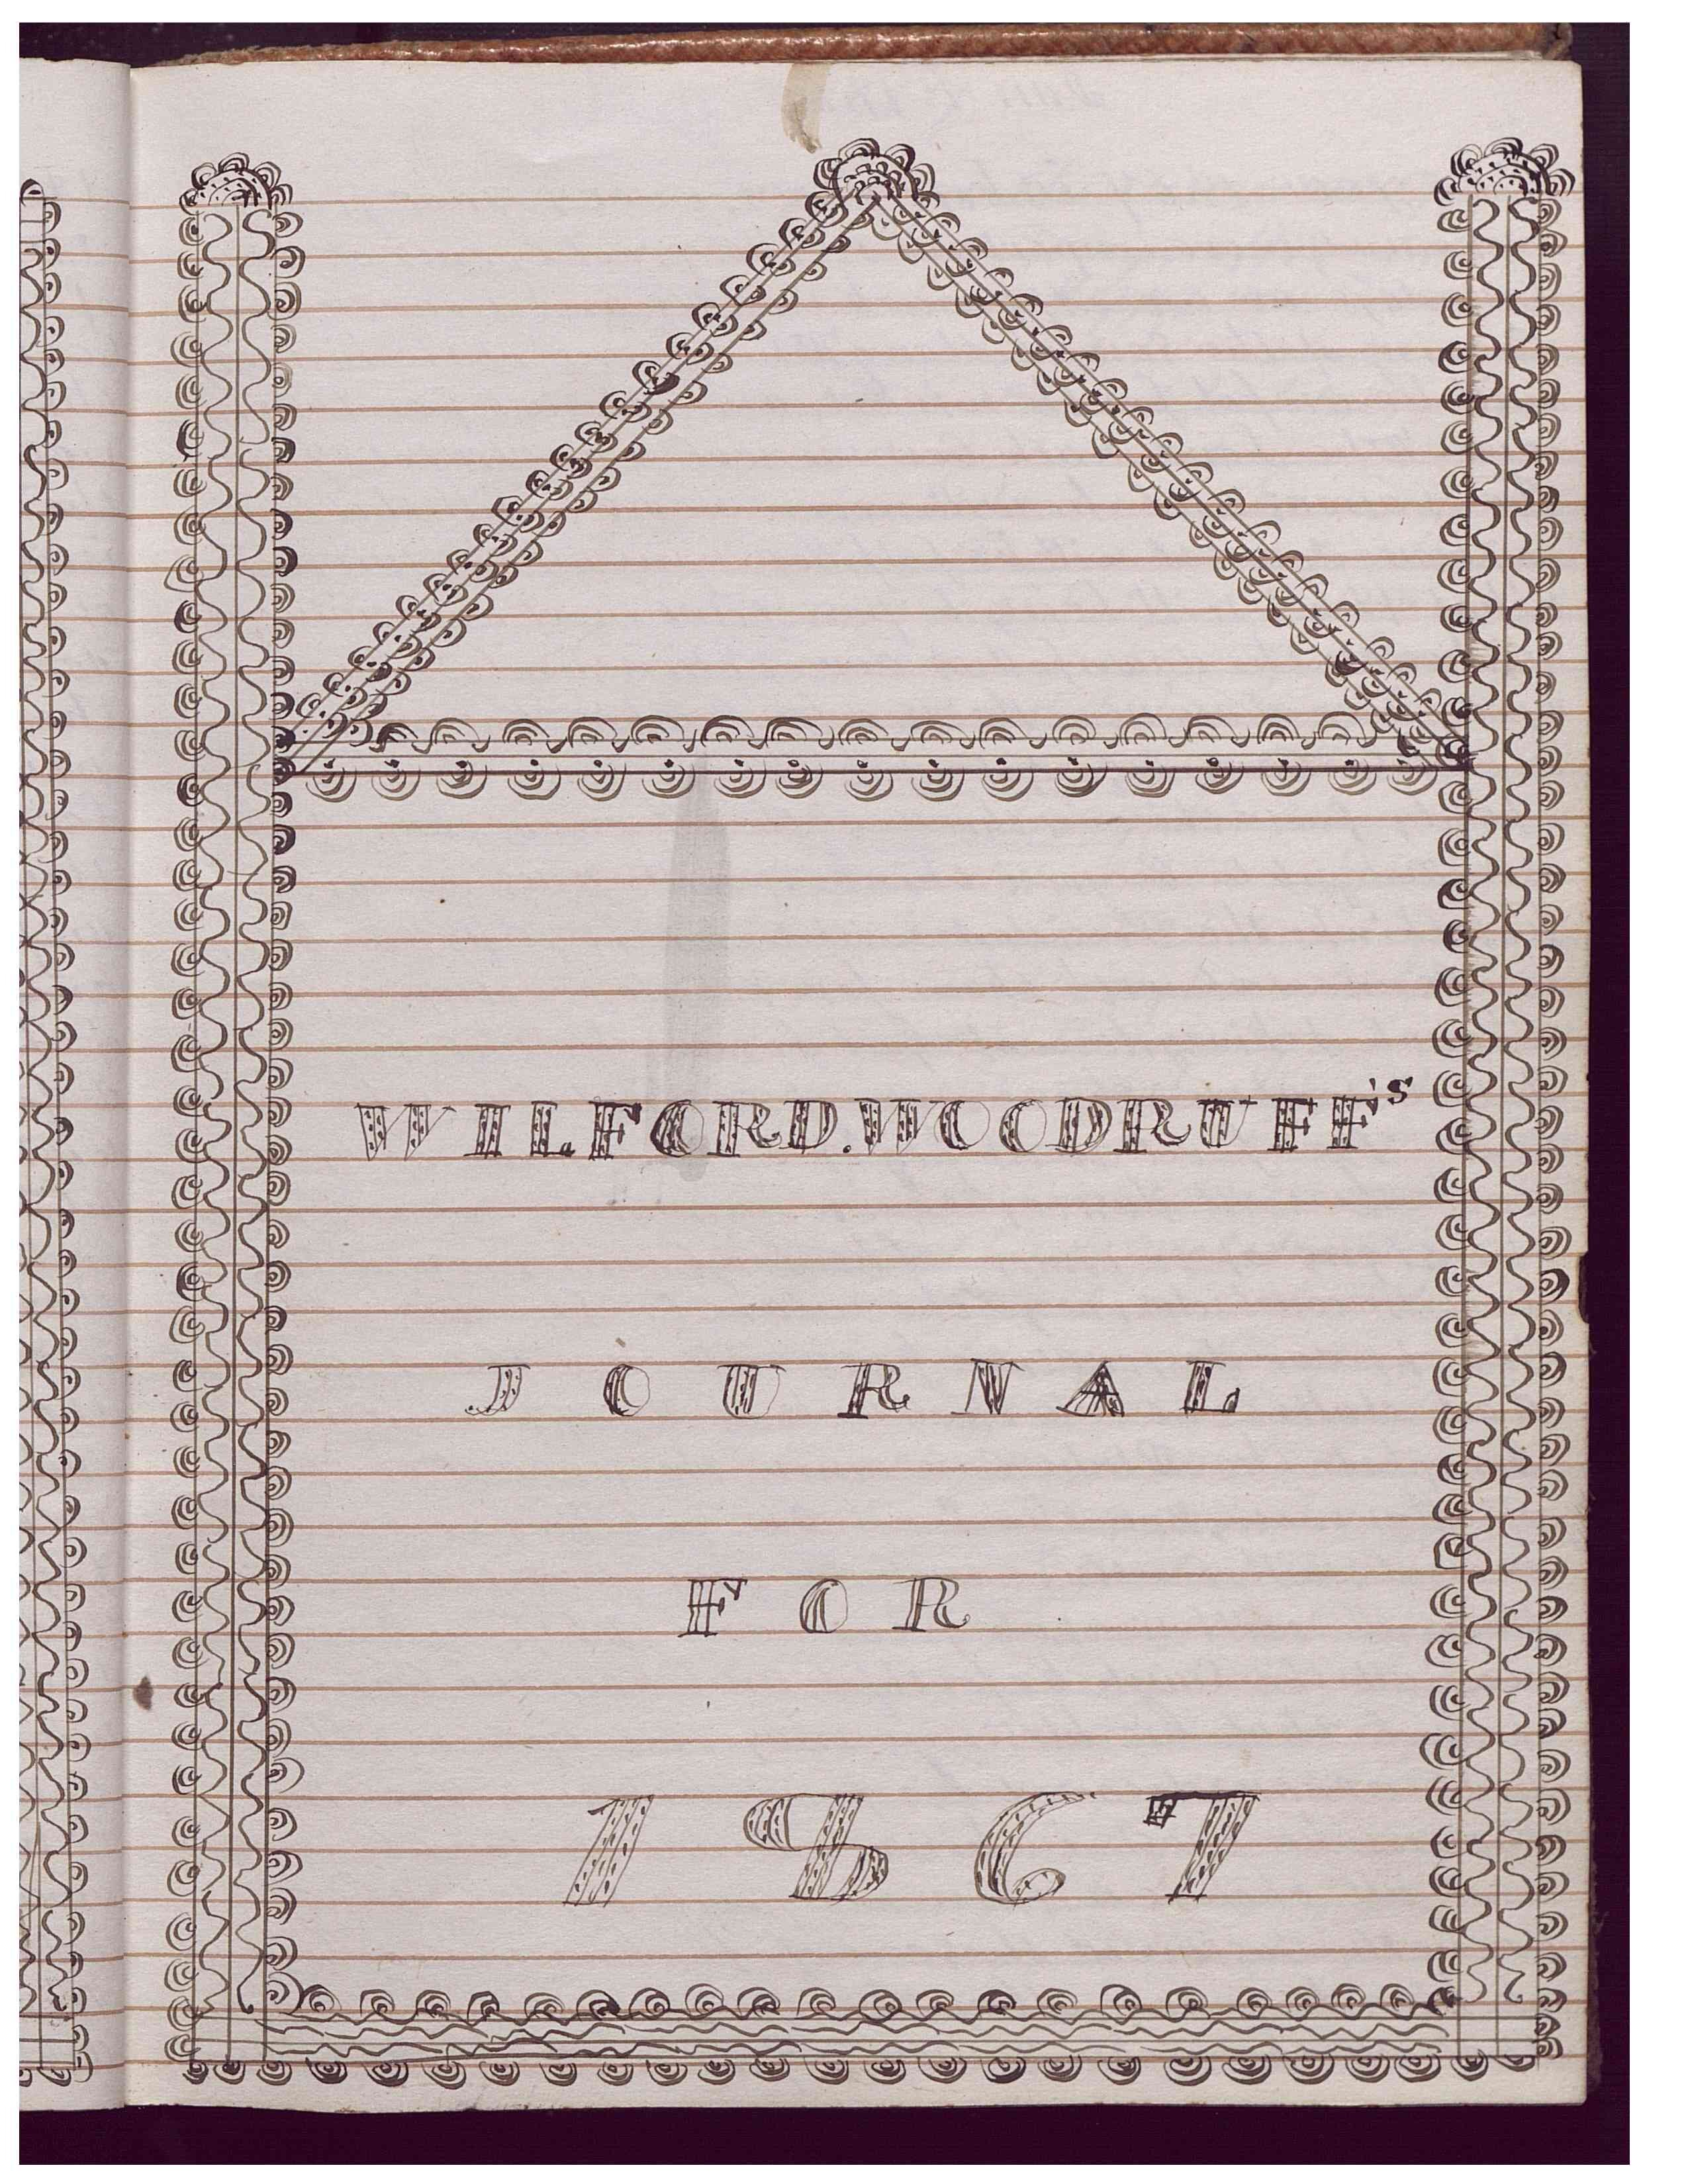 WILFORD.WOODRUFF's
JOURNAL
FOR
1867